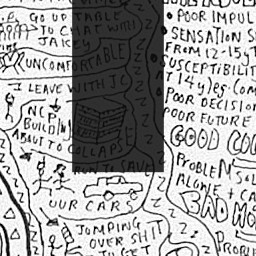 GO UP TABLE
TO CHAT WITH
JAKEY
UNCOMFORTABLE
I LEAVE WITH JC
NCP
BUILDIN
ABOUT TO COLLAPSE
RUN TO SAVE
OUR CARS
JUMPING
OVER SHIT
TO GET
POOR IMPUL
SENSATION S
FROM 12-15yr
SUSCEPTIBILIT
14 yrs. Com
POOR DECISIO
POOR FUTURE
GOOD COU
PROBLEM SOL
ALONE + CA
BAD MO
PROBL